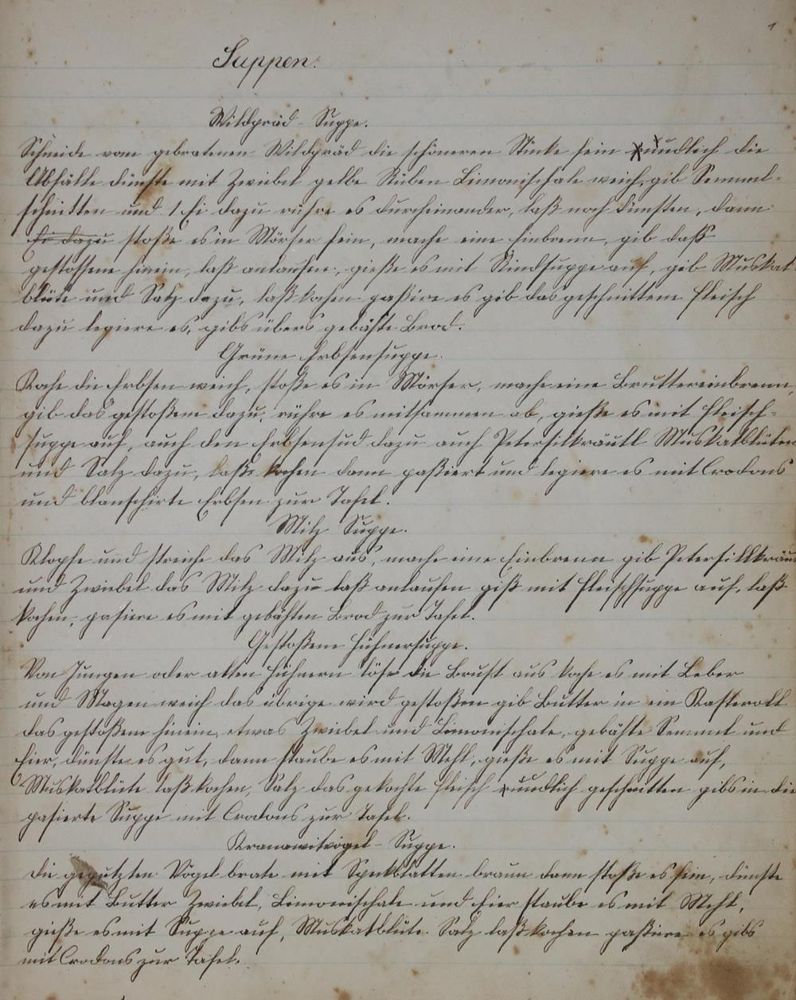 1
Suppen.
Wildpräd-Suppe.
Schneide vom gebratenen Wildpräd die schöneren Stücke fein nudlech die
Abfälle dünste mit Zwiebel gelbe Rüben Limonischale weich, gib Semml-
schnitten und 1 Ei dazu rühre es durcheinander, laß noch dünsten, dann
Ei dazu stoße es in Mörser fein, mache eine Einbrenn, gib daß
gestossene hinein, laß anlaufen, gieße es mit Rindsuppe auf, gib Muskat
blüte und Salz dazu, laß kochen passire es gib das geschnittene Fleisch
dazu legiere es, gibs übers gebähte Brod.
Grüne Erbsensuppe.
Koche die Erbsen weich, stoße es in Mörser, mache eine Buttereinbrenn,
gib das gestoßene dazu, rühre es mitsammen ab, gieße es mit Fleisch-
suppe auf, auch den Erbsensud dazu auch Petersilkräutl Muskatblüten
und Salz dazu, laße kochen dann paßiert und legiere es mit Crodons
und blanschirte Erbsen zur Tafel.
Milz Suppe.
Klopfe und streiche das Milz aus, mache eine Einbrenn gib Petersillkräut
und Zwiebel das Milz dazu laß anlaufen giß mit Fleischsuppe auf, laß
kochen, pasiere es mit gebähten Brod zur Tafel.
Gestoßene Hühnersuppe.
Von Jungen oder alten Hühnern löse die Brust aus koche es mit Leber
und Magen weich das übrige wird gestoßen gib Butter in ein Kasteroll
das gestoßene hinein, etwas Zwiebel und Limonischale, gebähte Semmel und
Eier, dünste es gut, dann staube es mit Mehl, gieße es mit Suppe auf,
Muskatblüte laß kochen, Salz das gekochte Fleisch nudlich geschnitten gibs in die
pasierte Suppe mit Crodons zur Tafel.
Kranawitvögel-Suppe.
Die geputzten Vögel brate mit Speckblatten braun dann stoße es fein, dünste
es mit Butter Zwiebel, Limonischale und Eier staube es mit Mehl,
gieße es mit Suppe auf, Muskatblüte. Salz laß kochen paßiere es gibs
mit Crodons zur Tafel.